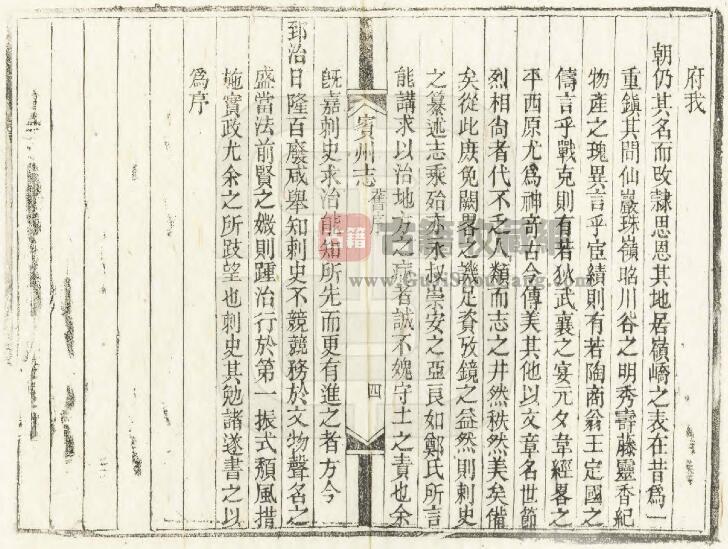 府我
朝仍其名而改隸思恩其地居嶺嶠之表在昔為一
重鎮其間仙巖珠嶺昭川谷之明秀壽藤靈香紀
物產之瑰異言乎宦績則有若陶商翁王定國之
儔言乎戰克則有若狄武襄之宴元夕韋經畧之
平西原尤為神奇古今傳美其他以文章名世節
烈相尚者代不乏人類而志之井然秩然美矣備
矣從此庶免闕畧之譏足資攷鏡之益然則刺史
之纂述志乘殆亦永叔崇安之亞良如鄭氏所言
能講求以治地方之病者誠不媿守土之責也余
賓州志
舊序
四
既嘉刺史求治能知所先而更有進之者方今
郅治日隆百廢咸舉知刺史不競競務於文物聲名之
盛當法前賢之媺則踵治行於第一振式頹風措
施實政尤余之所跂望也刺史其勉諸遂書之以
為序
古籍收藏網
www.GujiShouCang.com